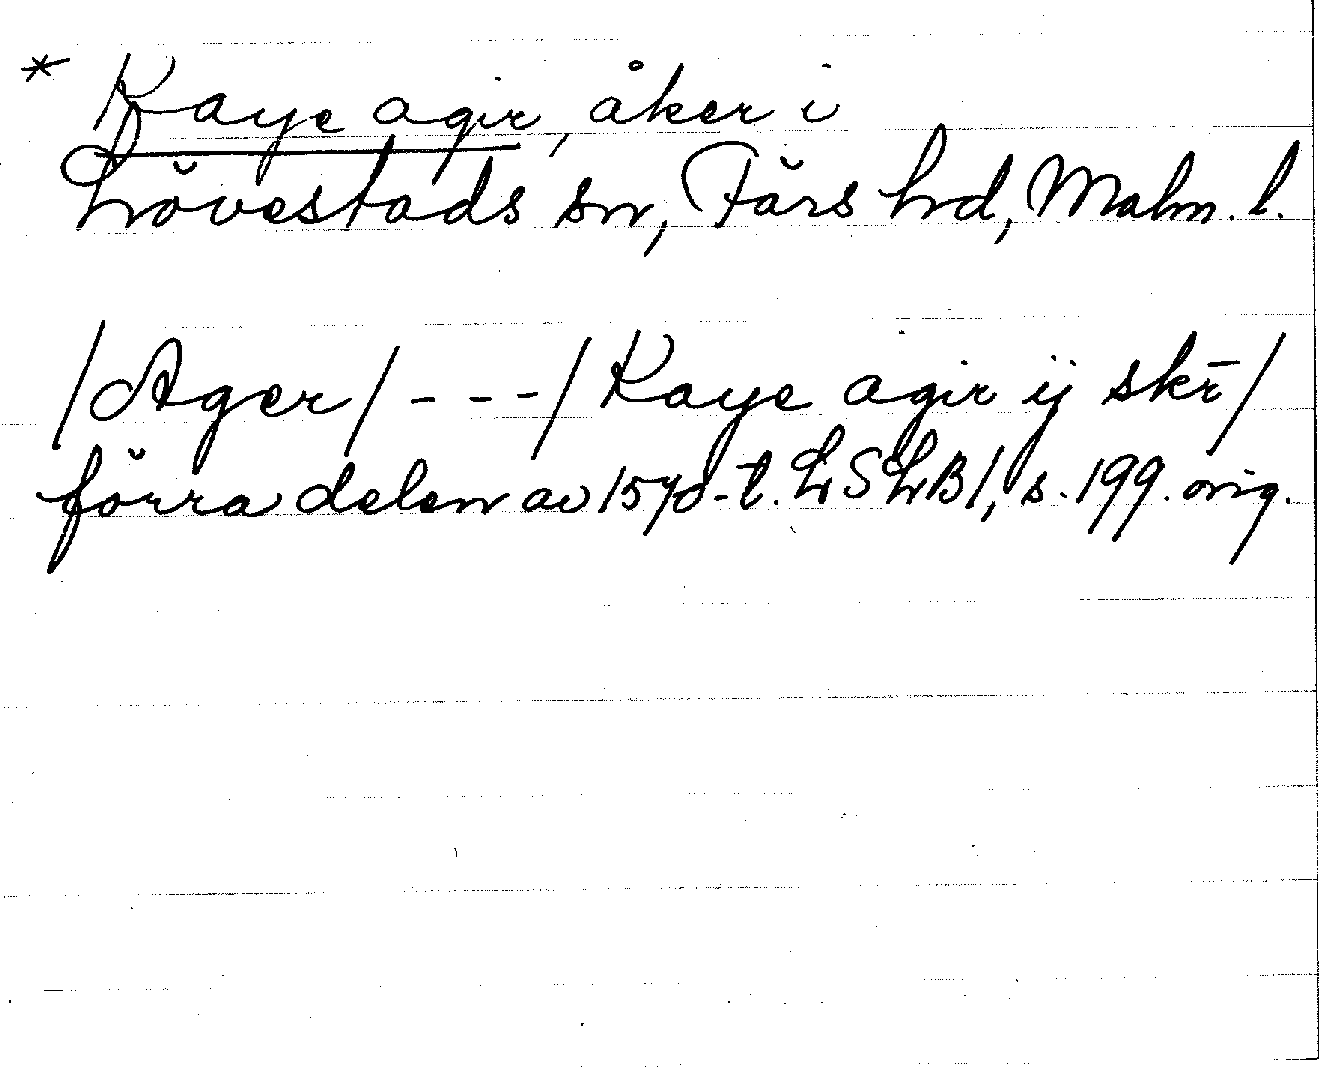 * Kaye agir, åker i
Lövestads sn, Färs hd, Malm. l.
/Ager/ - - - / Kaye agir ij skr̄ /
förra delen av 1570-t. LSLB 1, s. 199. orig.